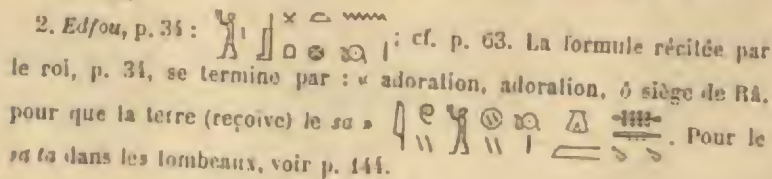 2. Edfou, p. 34 : ; cf. p. 63. La formule récitée par
le roi, p. 34, se termine par : « adoration, adoration, ô siège de Râ,
pour que la terre (reçoive) le sa » . Pour le
sa ta dans les tombeaux, voir p. 144.